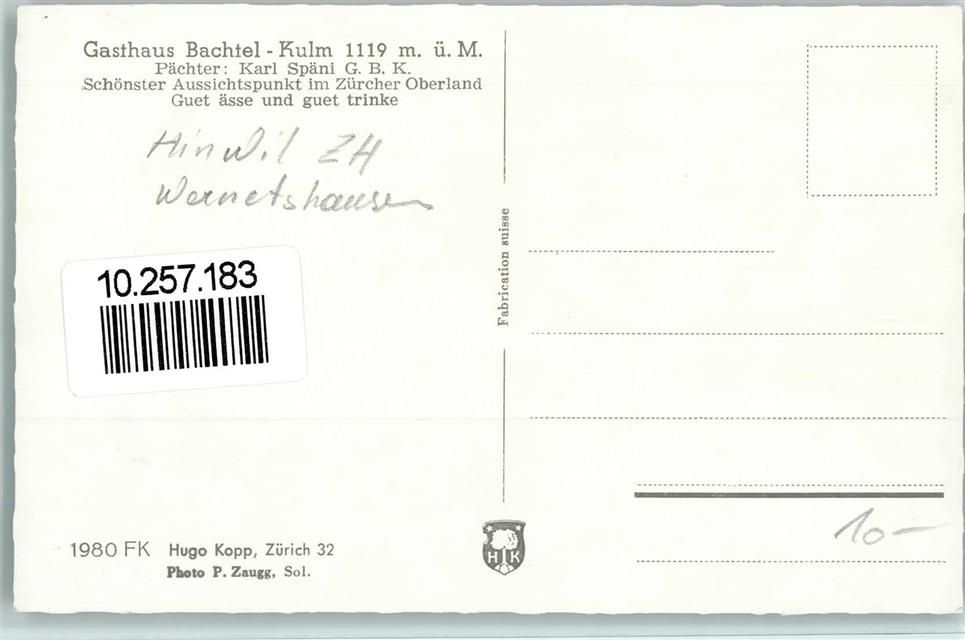 Gasthaus Bachtel - Kulm 1119 m. ü. M.
Pächter: Karl Späni G. B. K.
Schönster Aussichtspunkt im Zürcher Oberland
Guet ässe und guet trinke
Hinwil ZH
Wernetshausen
10.257.183
Fabrication suisse
1980 FK Hugo Kopp, Zürich 32
Photo P. Zaugg, Sol.
H K
10-